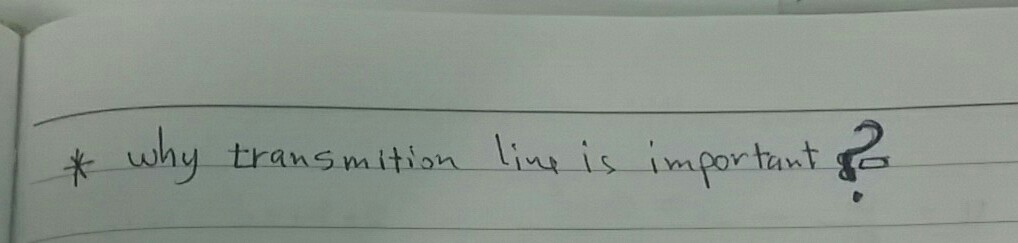 * why transmition line is important ?